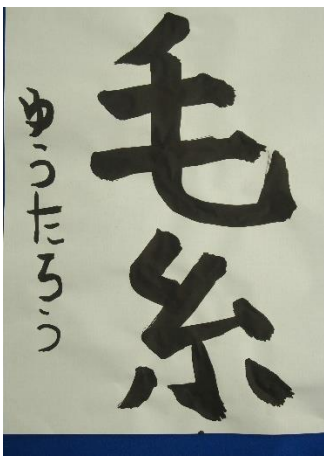 毛糸
ゆうたろう